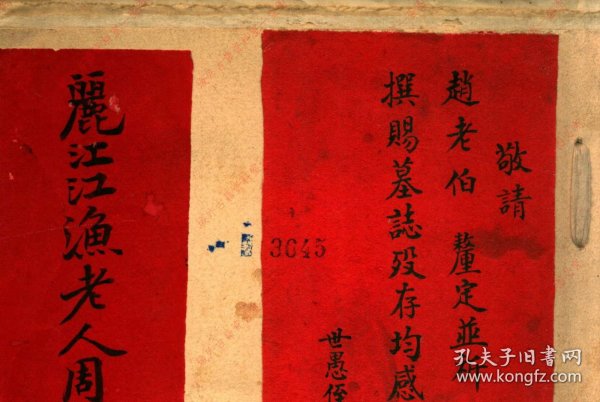 敬請
趙老伯 釐定並
撰賜墓誌殁存均感
世愚侄
3645
麗江江漁老人周
孔夫子旧书网
www.kongfz.com